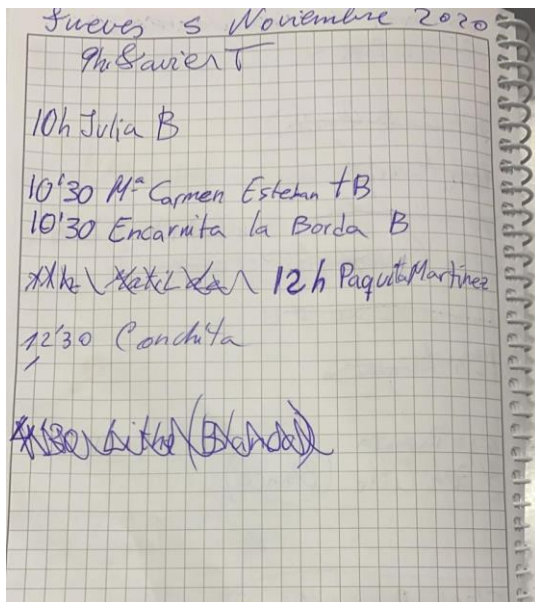 Jueves 5 Noviembre 2020
9h Xavier T
10h Julia B
10'30 Mª Carmen Esteban TB
10'30 Encarnita la Borda B
12h Paquita Martinez
12'30 Conchita